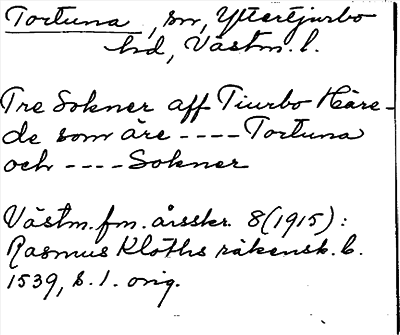 Tortuna, sn, Yttertjurbo
hd, Västm. l.
Tre Sokner aff Tiurbo Häre-
de som äre ---- Tortuna
och ---- Sokner
Västm. fm. årsskr. 8 (1915):
Rasmus Kloths räkensk. b.
1539, s. 1. orig.